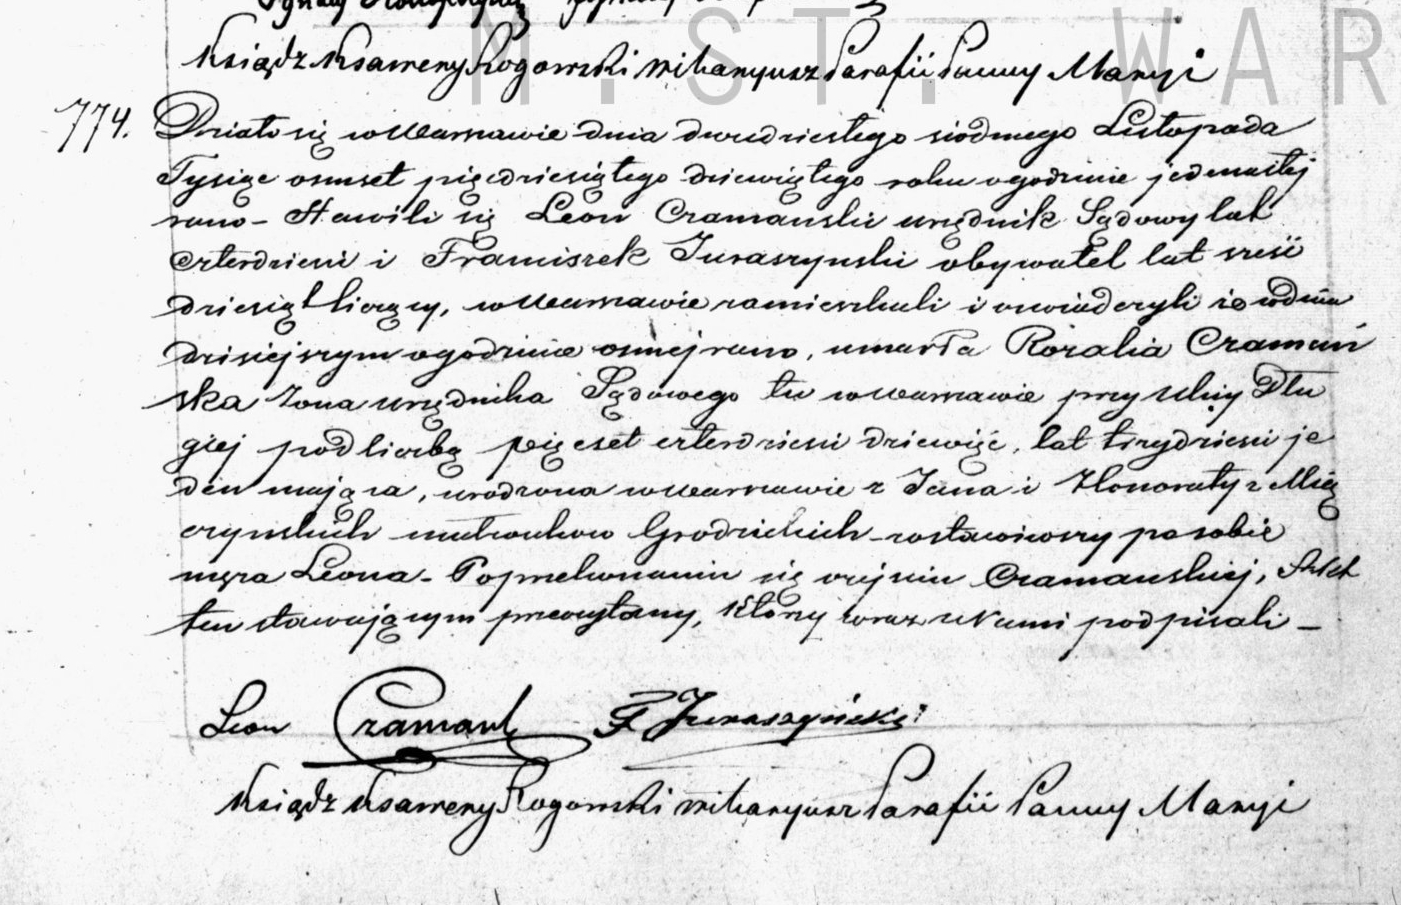 M. ST. WAR
Ksiądz Ksawery Rogowski wikaryusz Parafii Panny Maryi
774. Działo się w Warszawie dnia dwudziestego siódmego Listopada
Tysiąc osmset pięćdziesiątego dziewiątego roku o godzinie jedenastej
rano – Stawili się Leon Czamański urzędnik Sądowy lat
czterdzieści i Franciszek Juraszyński obywatel lat sześć
dziesiąt liczący, w Warszawie zamieszkali i oswiadczyli że w dniu
dzisiejszym o godzinie osmej rano, umarła Rozalia Czamań
ska żona urzędnika Sądowego tu w Warszawie przy Ulicy Dłu
giej pod liczbą pięćset czterdzieści dziewięć, lat trzydzieści je
den mająca, urodzona w Warszawie z Jana i Honoraty z Mią
czyńskich małżonków Grodzickich – zostawiwszy po sobie
męża Leona – Po przekonaniu się o zejściu Czamańskiej, Akt
ten stawającym przeczytany, który wraz z Nami podpisali –
Leon Czamań F Juraszyński
Ksiądz Ksawery Rogowski wikaryusz Parafii Panny Maryi